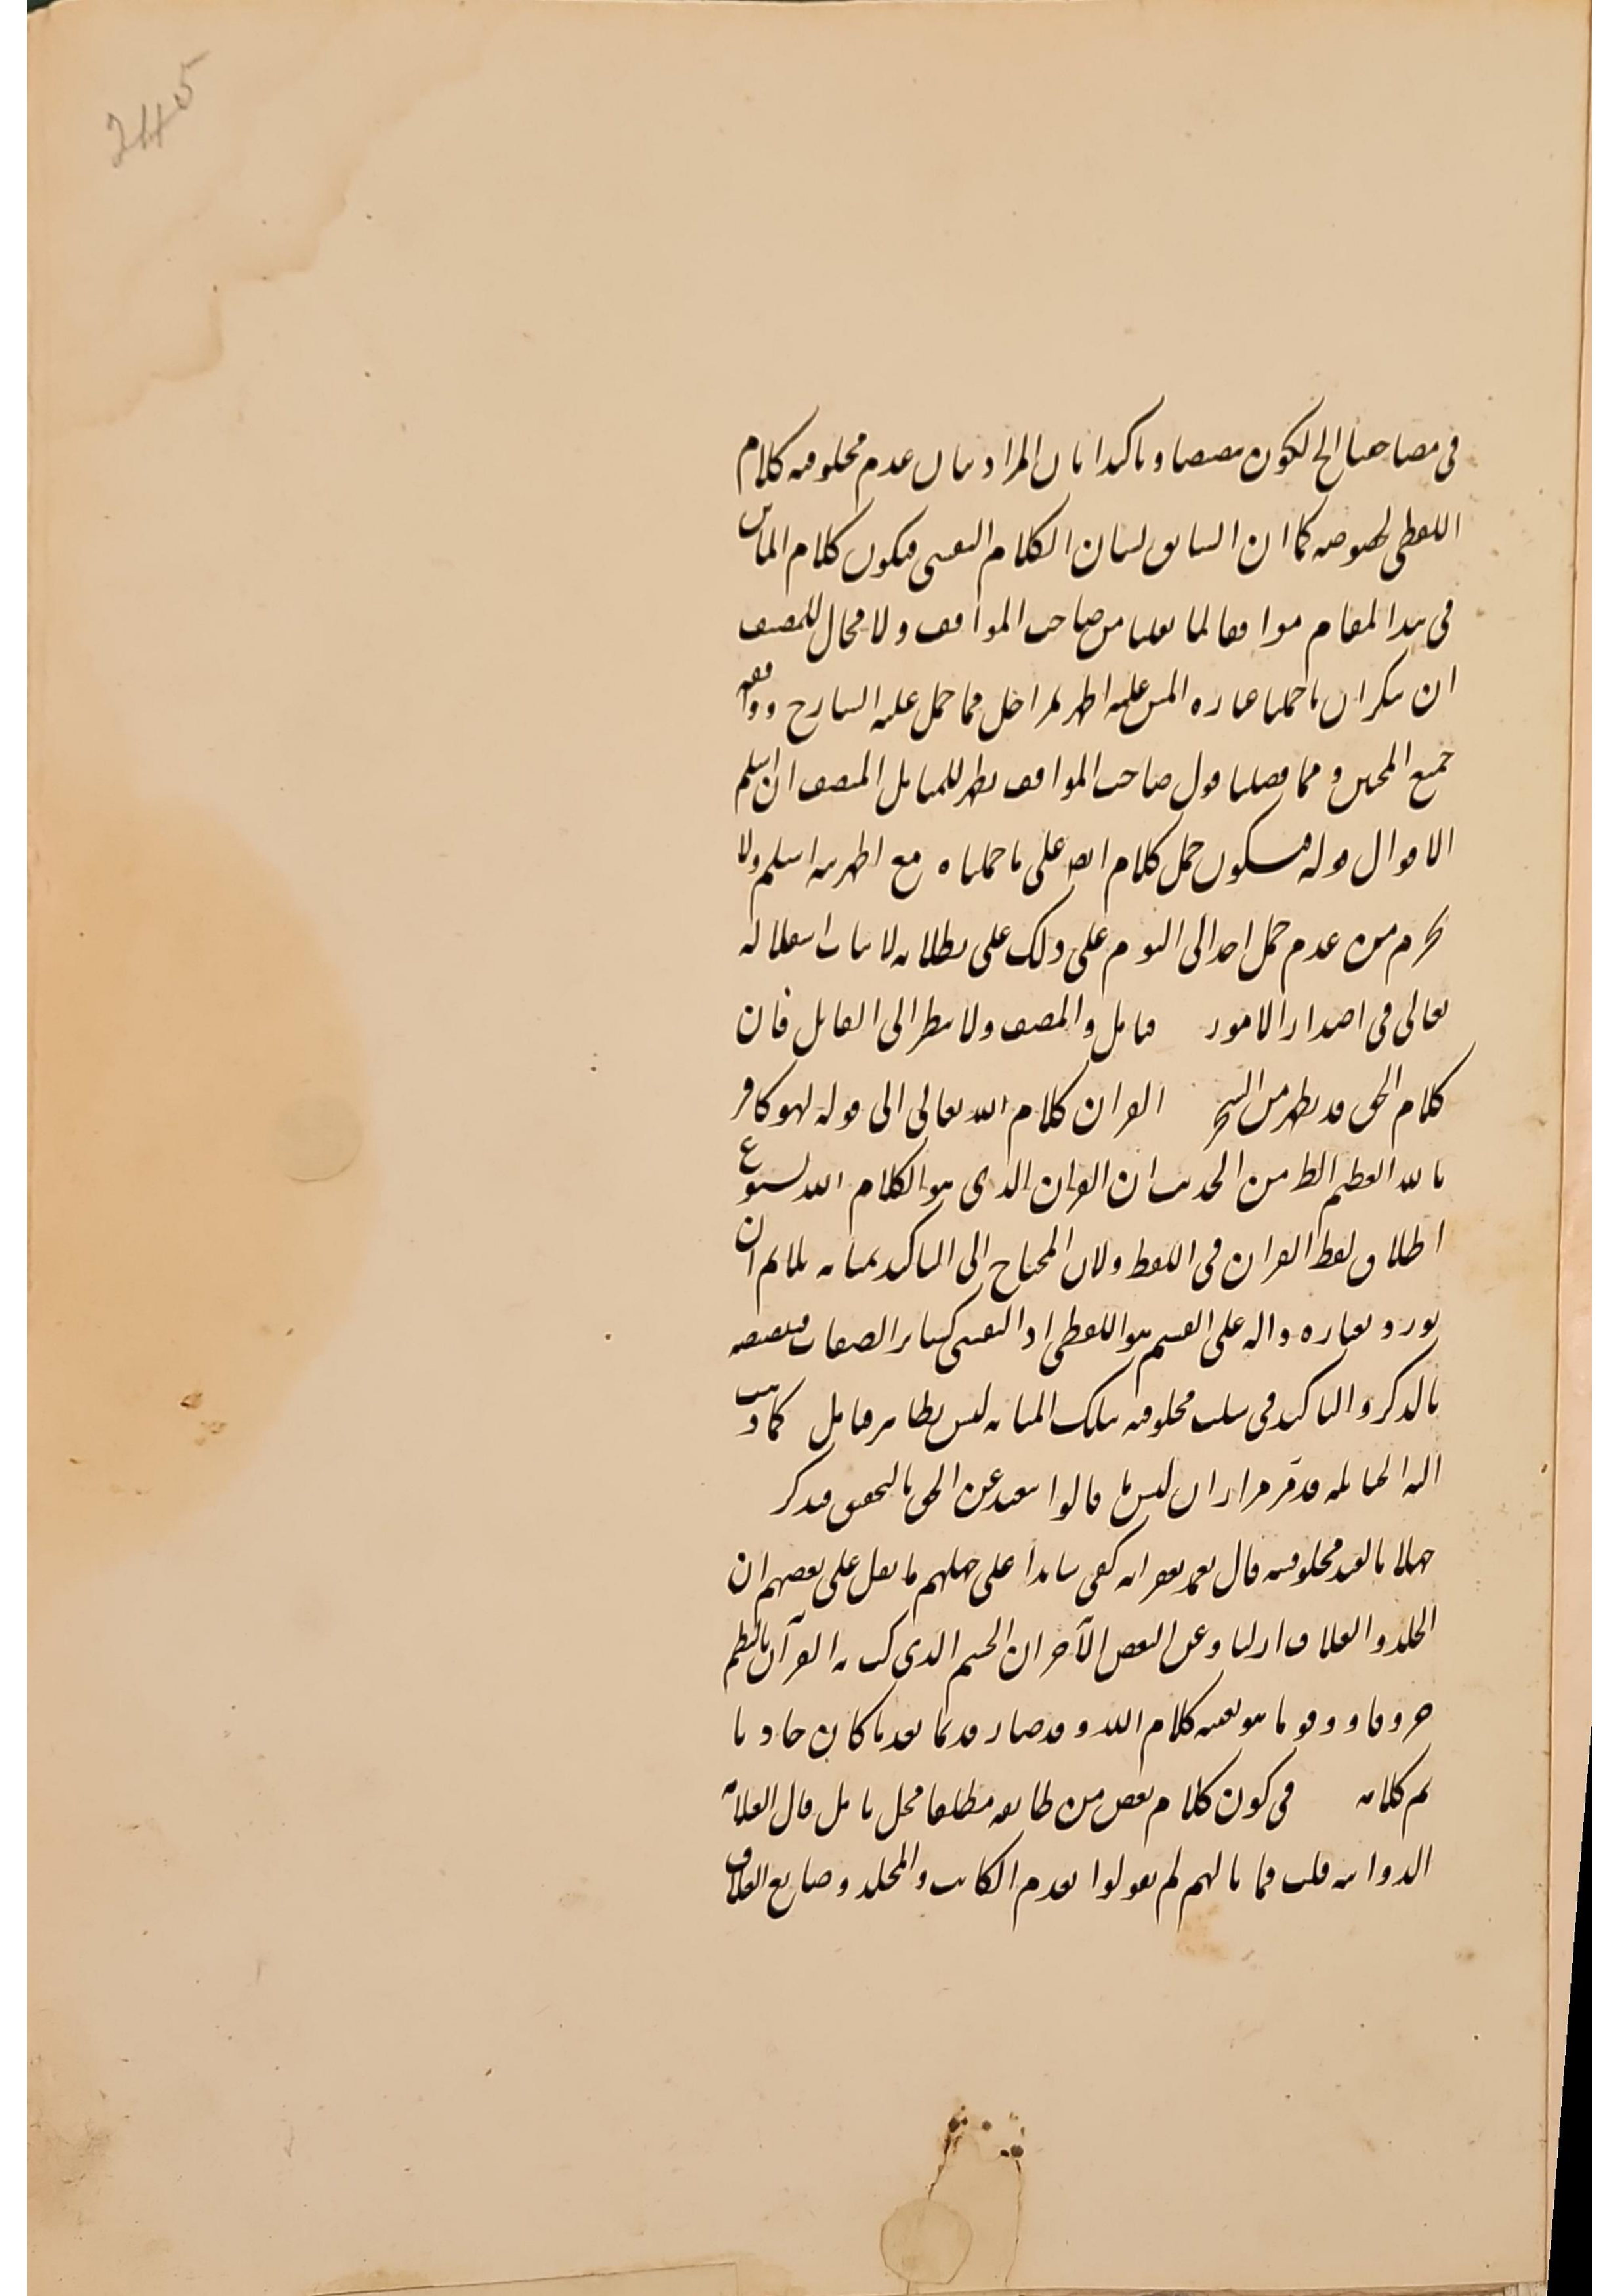 245
فى مصاحفنا الخ لكون تنصيصا و تاكيدا بان المراد بيان عدم مخلوقية كلام
اللفظى بخصوصه كما ان السابق لبيان الكلام النفسى فيكون كلام الماتن
فى هذا المقام موافقا لما نقلنا من صاحب المواقف ولا مجال للمنصف
ان ينكر ان ما حملنا عبارة المتن عليه اظهر مما حمل عليه الشارح ووافقه
جميع المحشين ومما فصلنا قول صاحب المواقف يظهر للمتامل المنصف ان اسلم
الاقوال قوله فسيكون حمل كلام المصـ على ما حملناه مع اظهريته اسلم ولا
يجزم من عدم حمل احد الى اليوم على ذلك على بطلانه لاثبات استقلاله
تعالى فى اصدار الامور فتامل وانصف ولا تنظر الى القائل فان
كلام الحق قد يظهر من الشجر القران كلام الله تعالى الى قوله فهو كافر
بالله العظيم الظ من الحديث ان القران الذى هو الكلام الله لشيوع
اطلاق لفظ القران فى اللفظ ولان المحتاج الى التاكيد بمثابة يلايم ان
يورد بعبارة دالة على القسم هو اللفظى اذ النفسى كسائر الصفات فتخصيصه
بالذكر و التاكيد فى سلب مخلوقيته بتلك المثابة ليس بظاهر فتامل كما ذهبت
اليه الحنابلة قد مر مرارا ان ليس ما قالوا ببعيد عن الحق بالتحقيق فتذكر
جهلا بالغير مخلوقيته قال بعد نقرانه كفى شاهدا على جهلهم ما نقل على بعضهم ان
الجلد والغلاف ازليان وعن البعض الآخر ان الجسم الذى كتب به القرآن فانتظم
حروفا و رقوما هو بعينه كلام الله و قد صار قديما بعد ما كان حادثا
تم كلامه فى كون كلام بعض من طائفة مطلقا محل تامل قال العلامة
الدوانى قلت فما بالهم لم يقولوا بقدم الكاتب والمجلد و صانع الغلاف